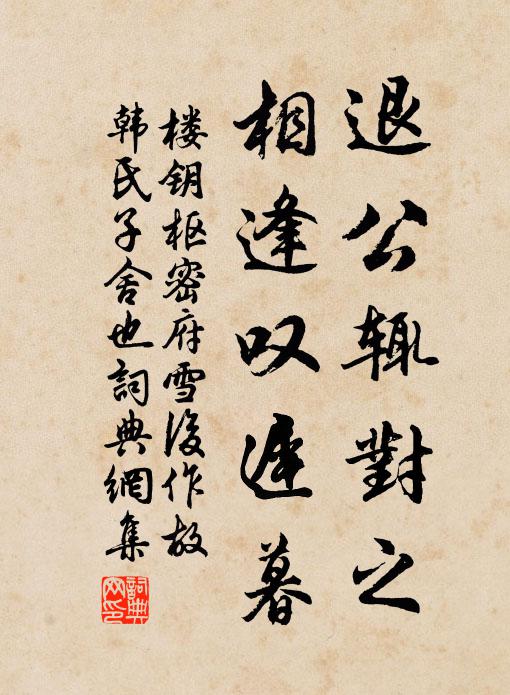 退公辄對之
相逢叹遲暮
楼钥枢密府雪後作故
韩氏子舍也詞典網集